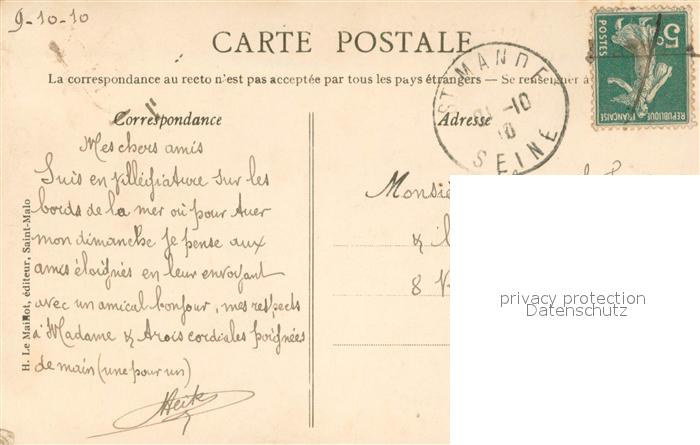 9-10-10
CARTE POSTALE
La correspondance au recto n'est pas acceptée par tous les pays étrangers — Se renseigner à
Correspondance
Mes chers amis
Suis en villégiature sur les
bords de la mer où pour tuer
mon dimanche je pense aux
amis éloignés en leur envoyant
avec un amical bonjour, mes respects
à Madame & trois cordiales poignées
de main (une pour un)
H. Le Maillot, éditeur, Saint-Malo
Adresse
ST MANDE
-10
10
SEINE
5c
POSTES
REPUBLIQUE FRANÇAISE
Monsie
&
8
privacy protection
Datenschutz